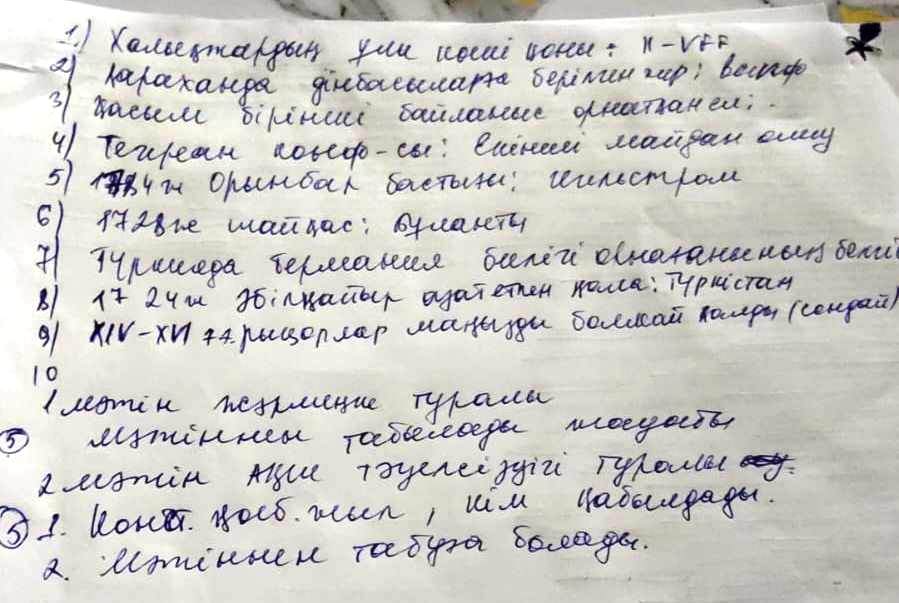 1) Халықтардың ұлы көші қоны: II-Vғғ
2) Қараханда дінбасыларға берілген жер: вакуф
3) Қасым бірінші байланыс орнатқан ел:.
4) Тегеран конф-сы: Екінші майдан ашу
5) 1784ж Орынбал бастығы: Игельстром
6) 1728ж шайқас: Бұланты
7) Түркияда Германия билігі орнағанының белгіс
8) 1724ж Әбілқайыр азат еткен қала: Түркістан
9) XIV-XVI ғғ. рыцарлар маңызды болмай қалды (сондай)
10
1 мәтін жәрмеңке туралы
5 Мәтіннен табылады жауабы
2 мәтін АҚШ тәуелсіздігі туралы
5 1. Конст. қаб. жыл, кім қабылдады.
2. Мәтіннен табуға болады.